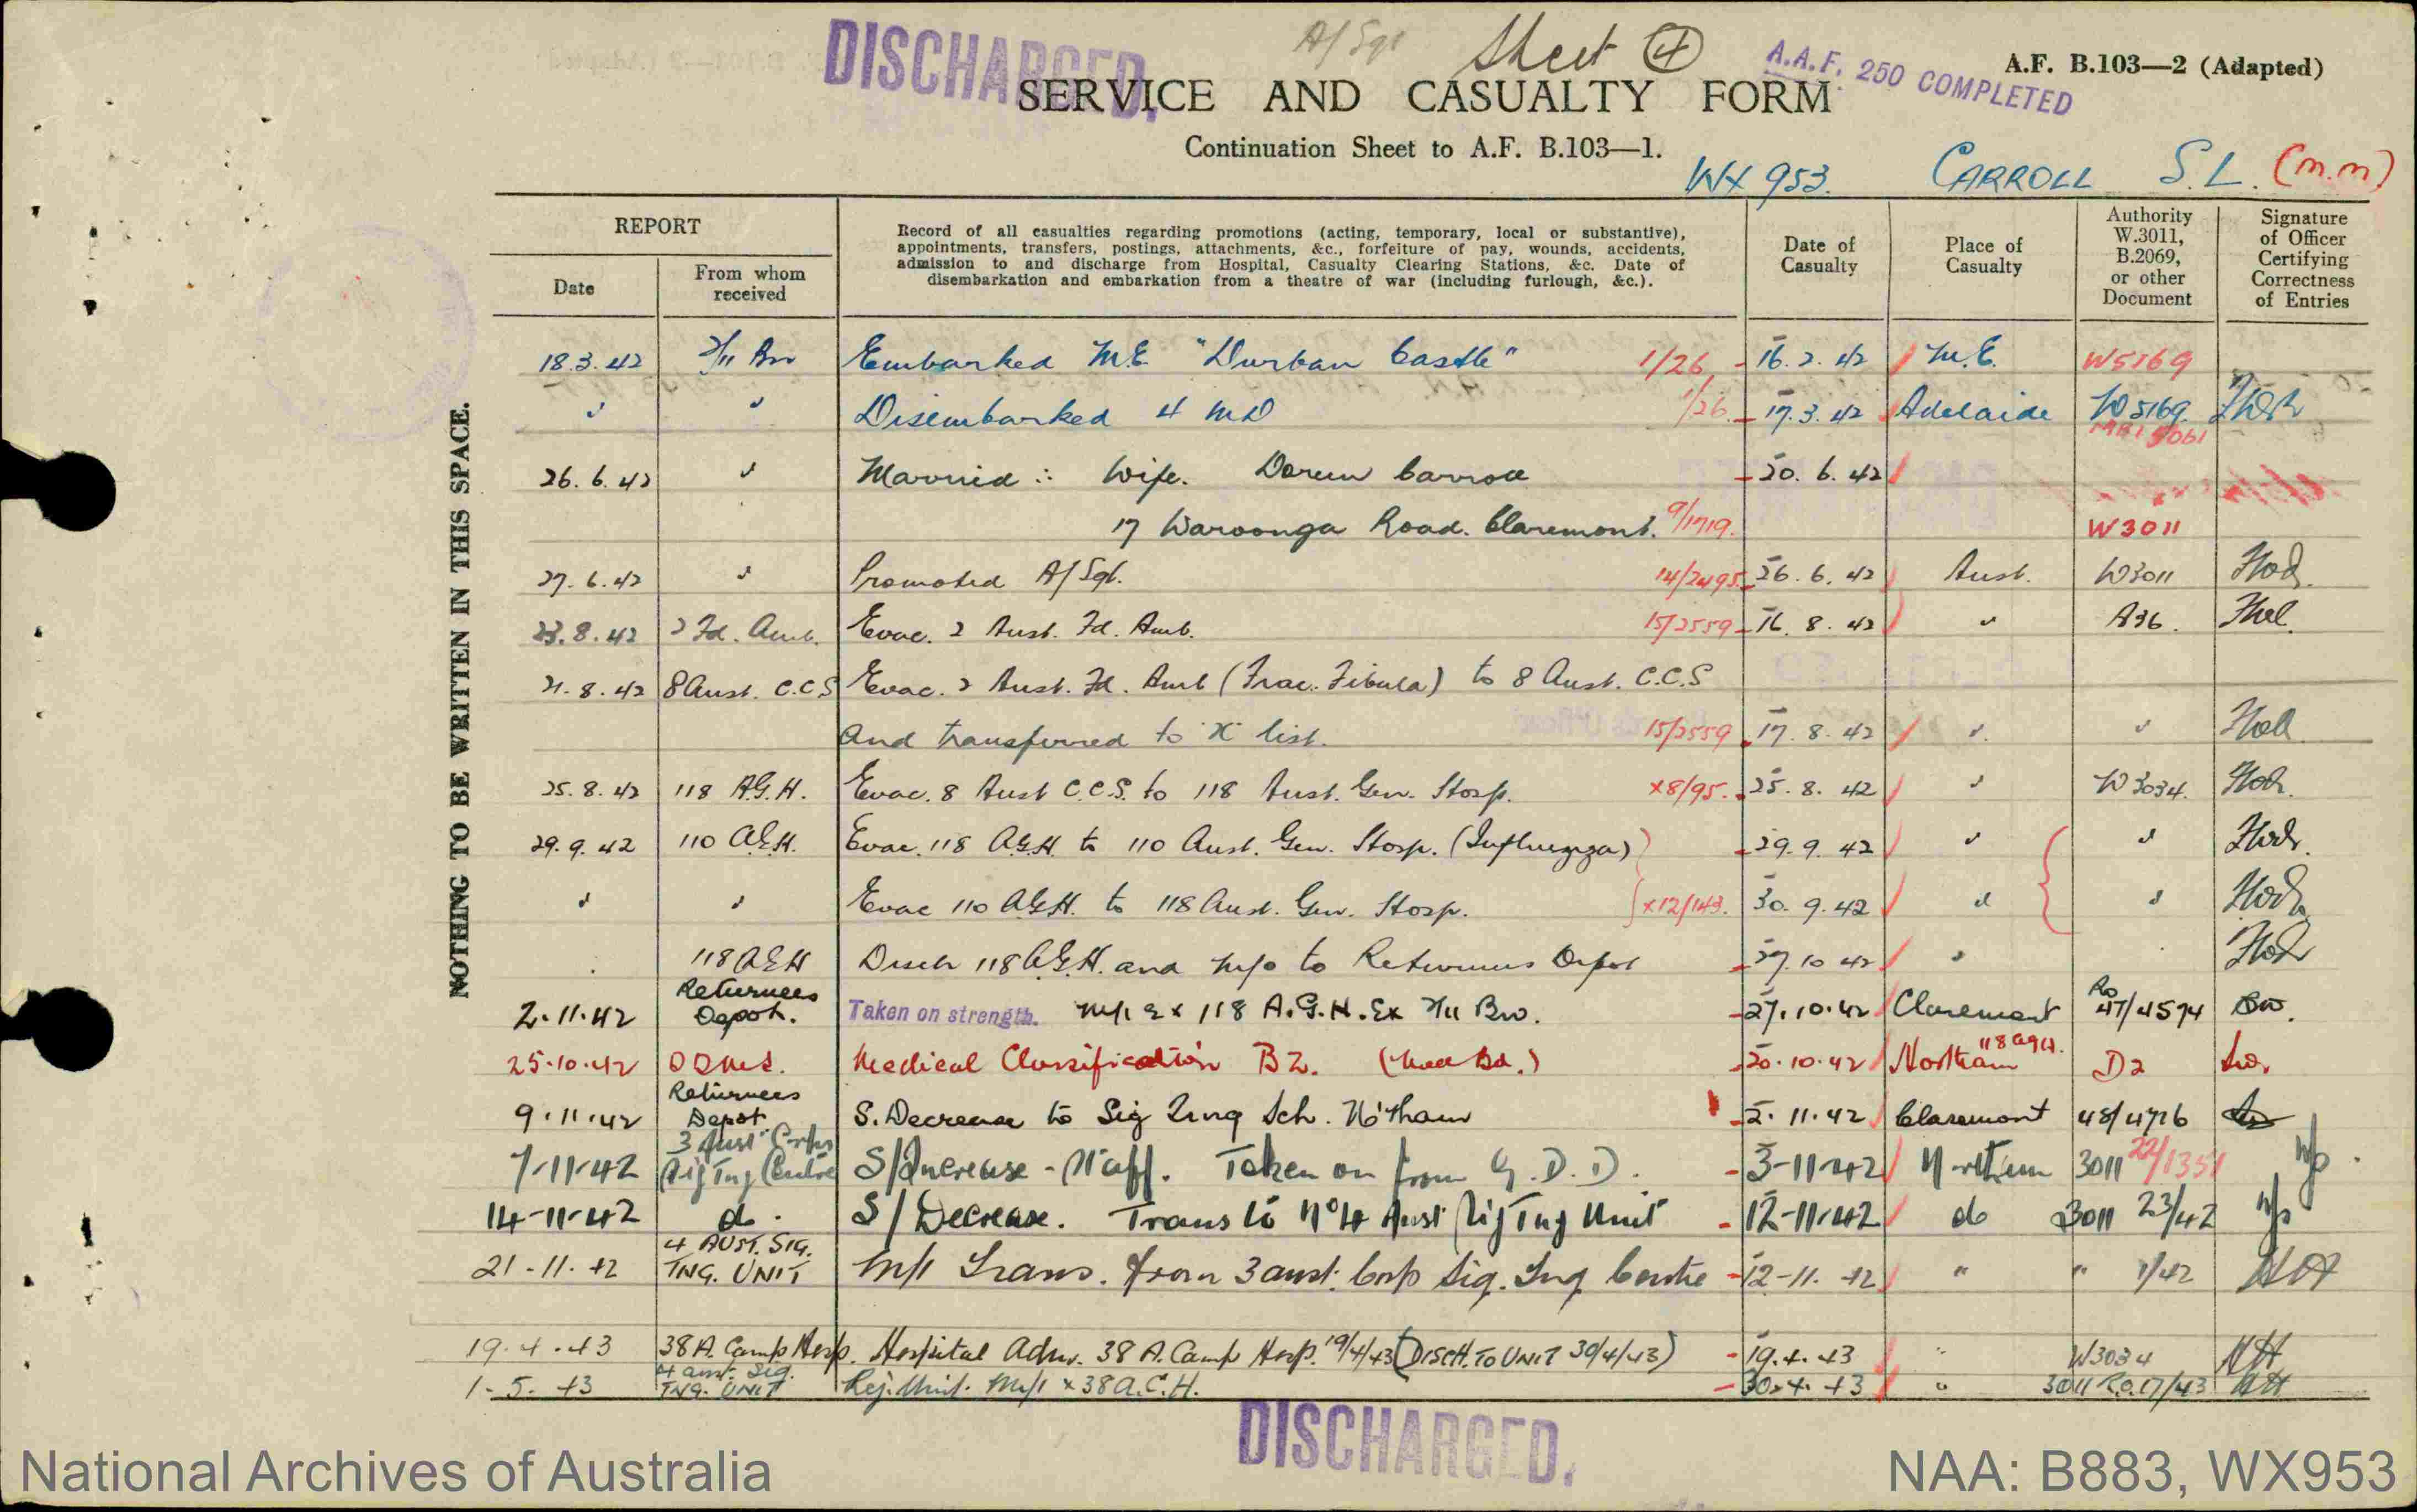 DISCHARGED.
A/Sgt
Sheet 4
A.A.F. 250 COMPLETED
A.F. B.103—2 (Adapted)
SERVICE AND CASUALTY FORM
Continuation Sheet to A.F. B.103—1.
WX 953. CARROLL S.L. (M.M)
NOTHING TO BE WRITTEN IN THIS SPACE.
REPORT
Date
From whom received
Record of all casualties regarding promotions (acting, temporary, local or substantive),
appointments, transfers, postings, attachments, &c., forfeiture of pay, wounds, accidents,
admission to and discharge from Hospital, Casualty Clearing Stations, &c. Date of
disembarkation and embarkation from a theatre of war (including furlough, &c.).
Date of Casualty
Place of Casualty
Authority W.3011, B.2069, or other Document
Signature of Officer Certifying Correctness of Entries
18.3.42 2/11 Bn Embarked M.E. "Durban Castle" 1/26 16.2.42 M.E. W5169
" " Disembarked 4 MD 1/26 17.3.42 Adelaide W5169
26.6.42 " Married :: Wife. Doreen Carroll 20.6.42
17 Waroonga Road. Claremont. 9/1719. W3011
27.6.42 " Promoted A/Sgt. 14/2495. 26.6.42 Aust. W3011
23.8.42 2 Fd. Amb. Evac. 2 Aust. Fd. Amb. 15/2559 16.8.42 " A36.
21.8.42 8 Aust. C.C.S Evac. 2 Aust. Fd. Amb (Frac. Fibula) to 8 Aust. C.C.S
and transferred to 'X' list. 15/2559 17.8.42 " "
25.8.42 118 A.G.H. Evac. 8 Aust C.C.S. to 118 Aust. Gen. Hosp. X8/95. 25.8.42 " W3034.
29.9.42 110 A.G.H. Evac. 118 A.G.H. to 110 Aust. Gen. Hosp. (Influenza) 29.9.42 " "
" " Evac 110 A.G.H. to 118 Aust. Gen. Hosp. X12/143. 30.9.42 " "
118 A.G.H Disch 118 A.G.H. and M/o to Returnees Depot 27.10.42 "
2.11.42 Returnees Depot. Taken on strength. M/I Ex 118 A.G.H. Ex 2/11 Bn. 27.10.42 Claremont Ro 47/4574
25.10.42 DDMS. Medical Classification B2. (Med Bd.) 20.10.42 Northam 118 AGH. D2
9.11.42 Returnees Depot. S. Decrease to Sig Tng Sch. N'tham 2.11.42 Claremont 48/4716
7-11-42 3 Aust Corps Sig Tng Centre S/Increase - Staff. Taken on from G.D.D. 3-11-42 Northam 3011 22/1351
14-11-42 do. S/Decrease. Trans to No 4 Aust Sig Tng Unit 12-11-42 do 3011 23/42
21-11-42 4 AUST. SIG. TNG. UNIT M/I Trans. from 3 Aust. Corp Sig. Tng Centre 12-11-42 " " 1/42
19.4.43 38 A. Camp Hosp. Hospital Adm. 38 A. Camp Hosp. 19/4/43 (DISCH. TO UNIT 30/4/43) 19.4.43 " W3034
1.5.43 4 Aust. Sig. TNG. UNIT Rej. Unit. M/I x 38 A.C.H. 30.4.43 " 3011 R.O.17/43
DISCHARGED.
National Archives of Australia
NAA: B883, WX953